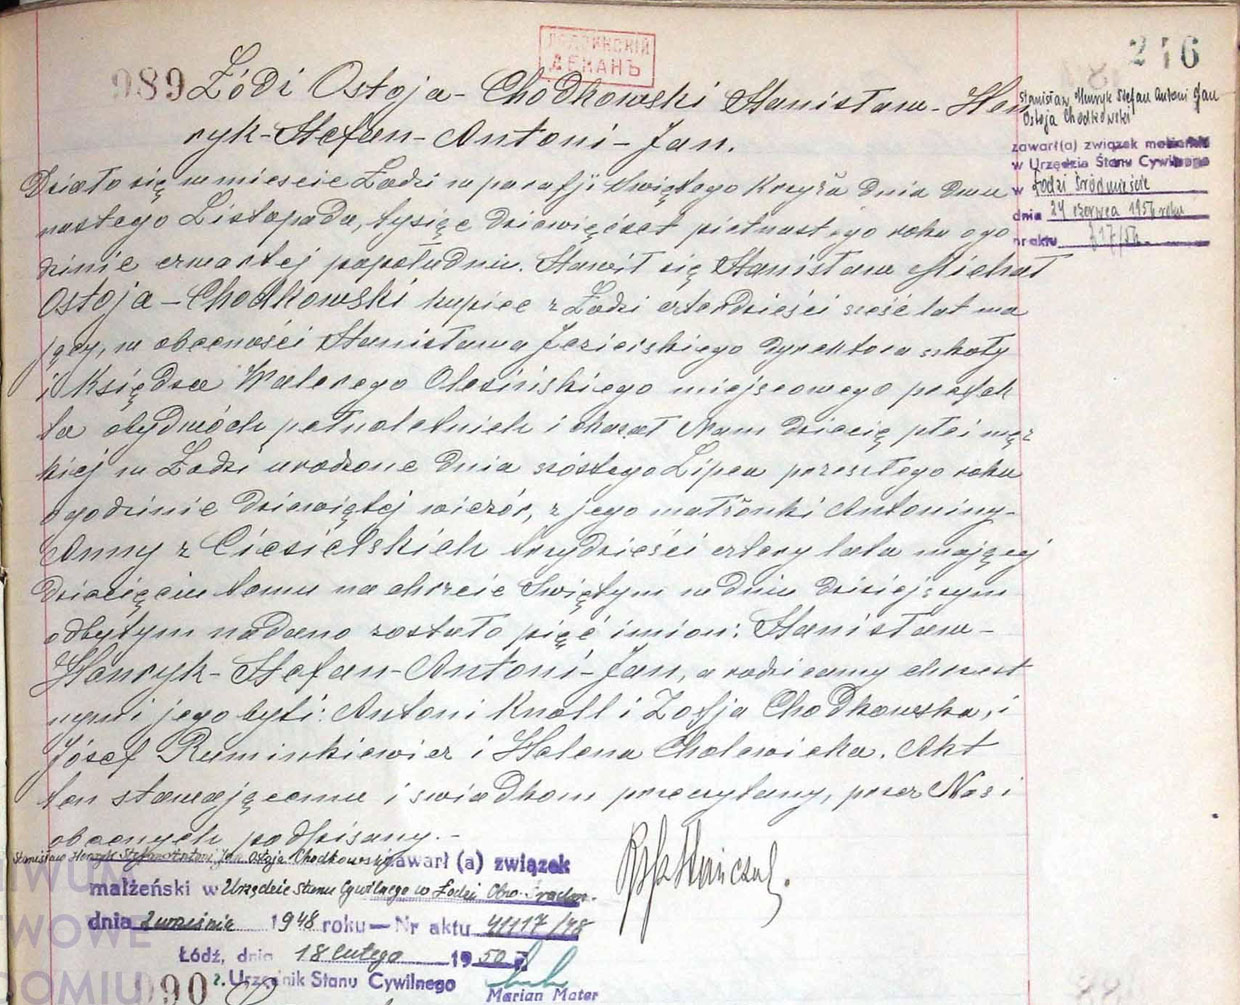 ЛОДЗИНСКІЙ
ДЕКАНЪ
246
989 Łódź Ostoja-Chodkowski Stanisław-Hen
ryk-Stefan-Antoni-Jan.
Działo się w mieście Łodzi w parafji świętego Krzyża dnia dwu
nastego Listopada, tysiąc dziewięćset piętnastego roku o go
dzinie czwartej popołudniu. Stawił się Stanisław Michał
Ostoja-Chodkowski kupiec z Łodzi czterdzieści sześć lat ma
jący, w obecności Stanisława Jezierskiego dyrektora szkoły
i Księdza Walerego Olesińskiego miejscowego prefek
ta obydwóch pełnoletnich i okazał Nam dziecię płci męz
kiej w Łodzi urodzone dnia szóstego Lipca przeszłego roku
o godzinie dziewiątej wieczór, z jego małżonki Antoniny-
Anny z Ciesielskich trzydzieści cztery lata mającej
dziecięciu temu na chrzcie świętym w dniu dzisiejszym
odbytym nadano zostało pięć imion: Stanisław-
Henryk-Stefan-Antoni-Jan, a rodzicami chrzest
nymi jego byli: Antoni Knoll i Zofja Chodkowska, i
Józef Ruminkiewicz i Helena Cholewicka. Akt
ten stawającemu i świadkom przeczytany, przez Nas i
obecnych podpisany.-
Stanisław Henryk Stefan Antoni Jan
Ostoja Chodkowski
zawarł(a) związek małżeński
w Urzędzie Stanu Cywilnego
w Łodzi Śródmieście
dnia 24 czerwca 1956 roku
nr aktu 817/56
Stanisław Henryk Stefan Antoni Jan Ostoja Chodkowski zawarł (a) związek
małżeński w Urzędzie Stanu Cywilnego w Łodzi
dnia 2 września 1948 roku — Nr aktu
Łódź, dnia 18 lutego 1950 r.
Urzędnik Stanu Cywilnego
Marian Mater
990